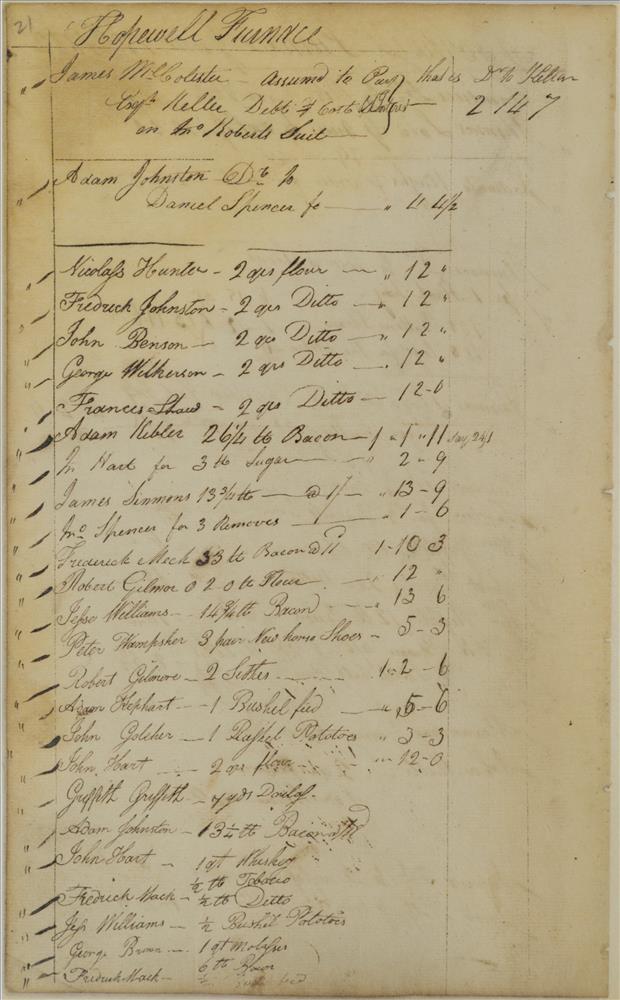 21
Hopewell Furnace
James McColester - Assumd to Pay that is Dr to Keller
Keller Debt & Cost 2 14 7
on Jno Roberts Suit
Adam Johnston Dr to
Daniel Spencer fo — " 11 4½
Nicolass Hunter - 2 qrs flour — " 12 "
Fredrick Johnston - 2 qrs Ditto — " 12 "
John Benson — 2 qrs Ditto — " 12 "
George Wilkerson - 2 qrs Ditto — " 12 "
Frances Shaw - 2 qrs Ditto — 12-0
Adam Kibler 26¼ lb Bacon — 1 " 1 " 11
Jn Hart for 3 lb Sugar — " 2-9
James Simmons 13¾ lb — @ 1/ — " 13-9
Jno Spencer for 3 Removes — " 1-6
Frederick Meck 33 lb Bacon @ 11 1-10 3
Robert Gilmor 0 2-0 lb Flour — 12 "
Jesse Williams — 14¾ lb Bacon — 13 6
Peter Wampsher 3 pair New horse Shoes - 5-3
Robert Gilmore - 2 Settles 1-2-6
Adam Hephart — 1 Bushel feed — " 5-6
John Golcher — 1 Bushel Potatoes " 3-3
John Hart — 2 qrs flour — " 12-0
Griffith Griffith - 7 yds Dowlas.
Adam Johnston - 13¼ lb Bacon
John Hart — 1 qt Whiskey
½ lb Tobacco
Fredrick Mack - ½ lb Ditto
Jess Williams — ½ Bushel Potatoes
George Brown — 1 qt Molasses
Fredrick Mack — 6 lb Bacon
½ feed